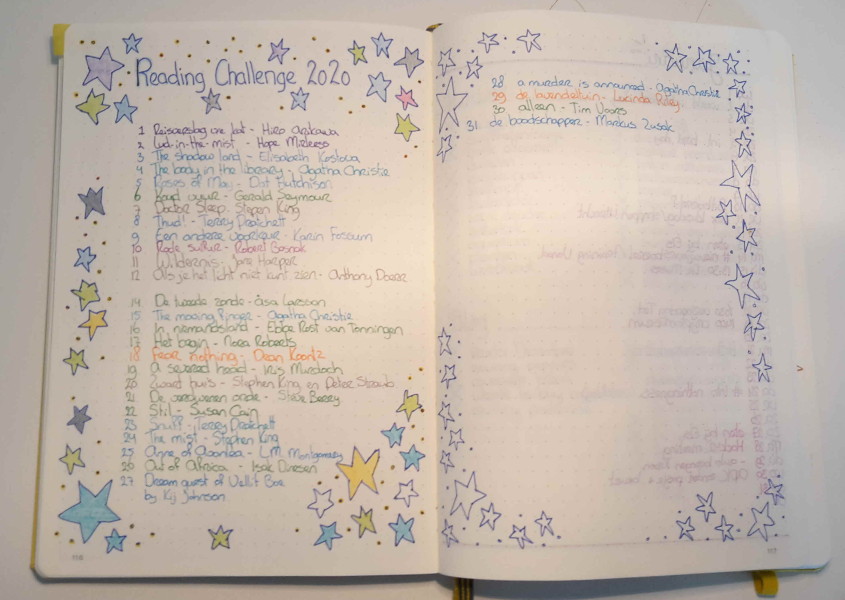 Reading Challenge 2020
1 Reisverslag een kat - Hiro Arikawa
2 Lud-in-the-mist - Hope Mirlees
3 The shadow land - Elisabeth Kostova
4 The body in the library - Agatha Christie
5 Roses of May - Dot Hutchison
6 Koud vuur - Gerald Seymour
7 Doctor Sleep. Stepen King
8 Thud! - Terry Pratchett
9 Een andere voorkeur - Karin Fossum
10 Rode suiker - Robert Bosnak
11 Wildernis - Jane Harper
12 Als je het licht niet kunt zien - Anthony Doerr
14 De tweede zonde - åsa Larsson
15 The moving finger - Agatha Christie
16 In niemandsland - Ebbe Rost van Tonningen
17 Het begin - Nora Roberts
18 Fear nothing - Dean Koontz
19 A severed head - Iris Murdoch
20 Zwart huis - Stephen King en Peter Straub
21 De verdwenen orde - Steve Berry
22 Stil - Susan Cain
23 Snuff - Terry Pratchett
24 The mist - Stephen King
25 Anne of Avonlea - L.M. Montgomery
26 Out of Africa - Isak Dinesen
27 Dream quest of Vellit Boe
by Kij Johnson
28 a murder is announced - Agatha Christie
29 de lavendeltuin - Lucinda Riley
30 alleen - Tim Voors
31 de boodschapper - Markus Zusak
116
117